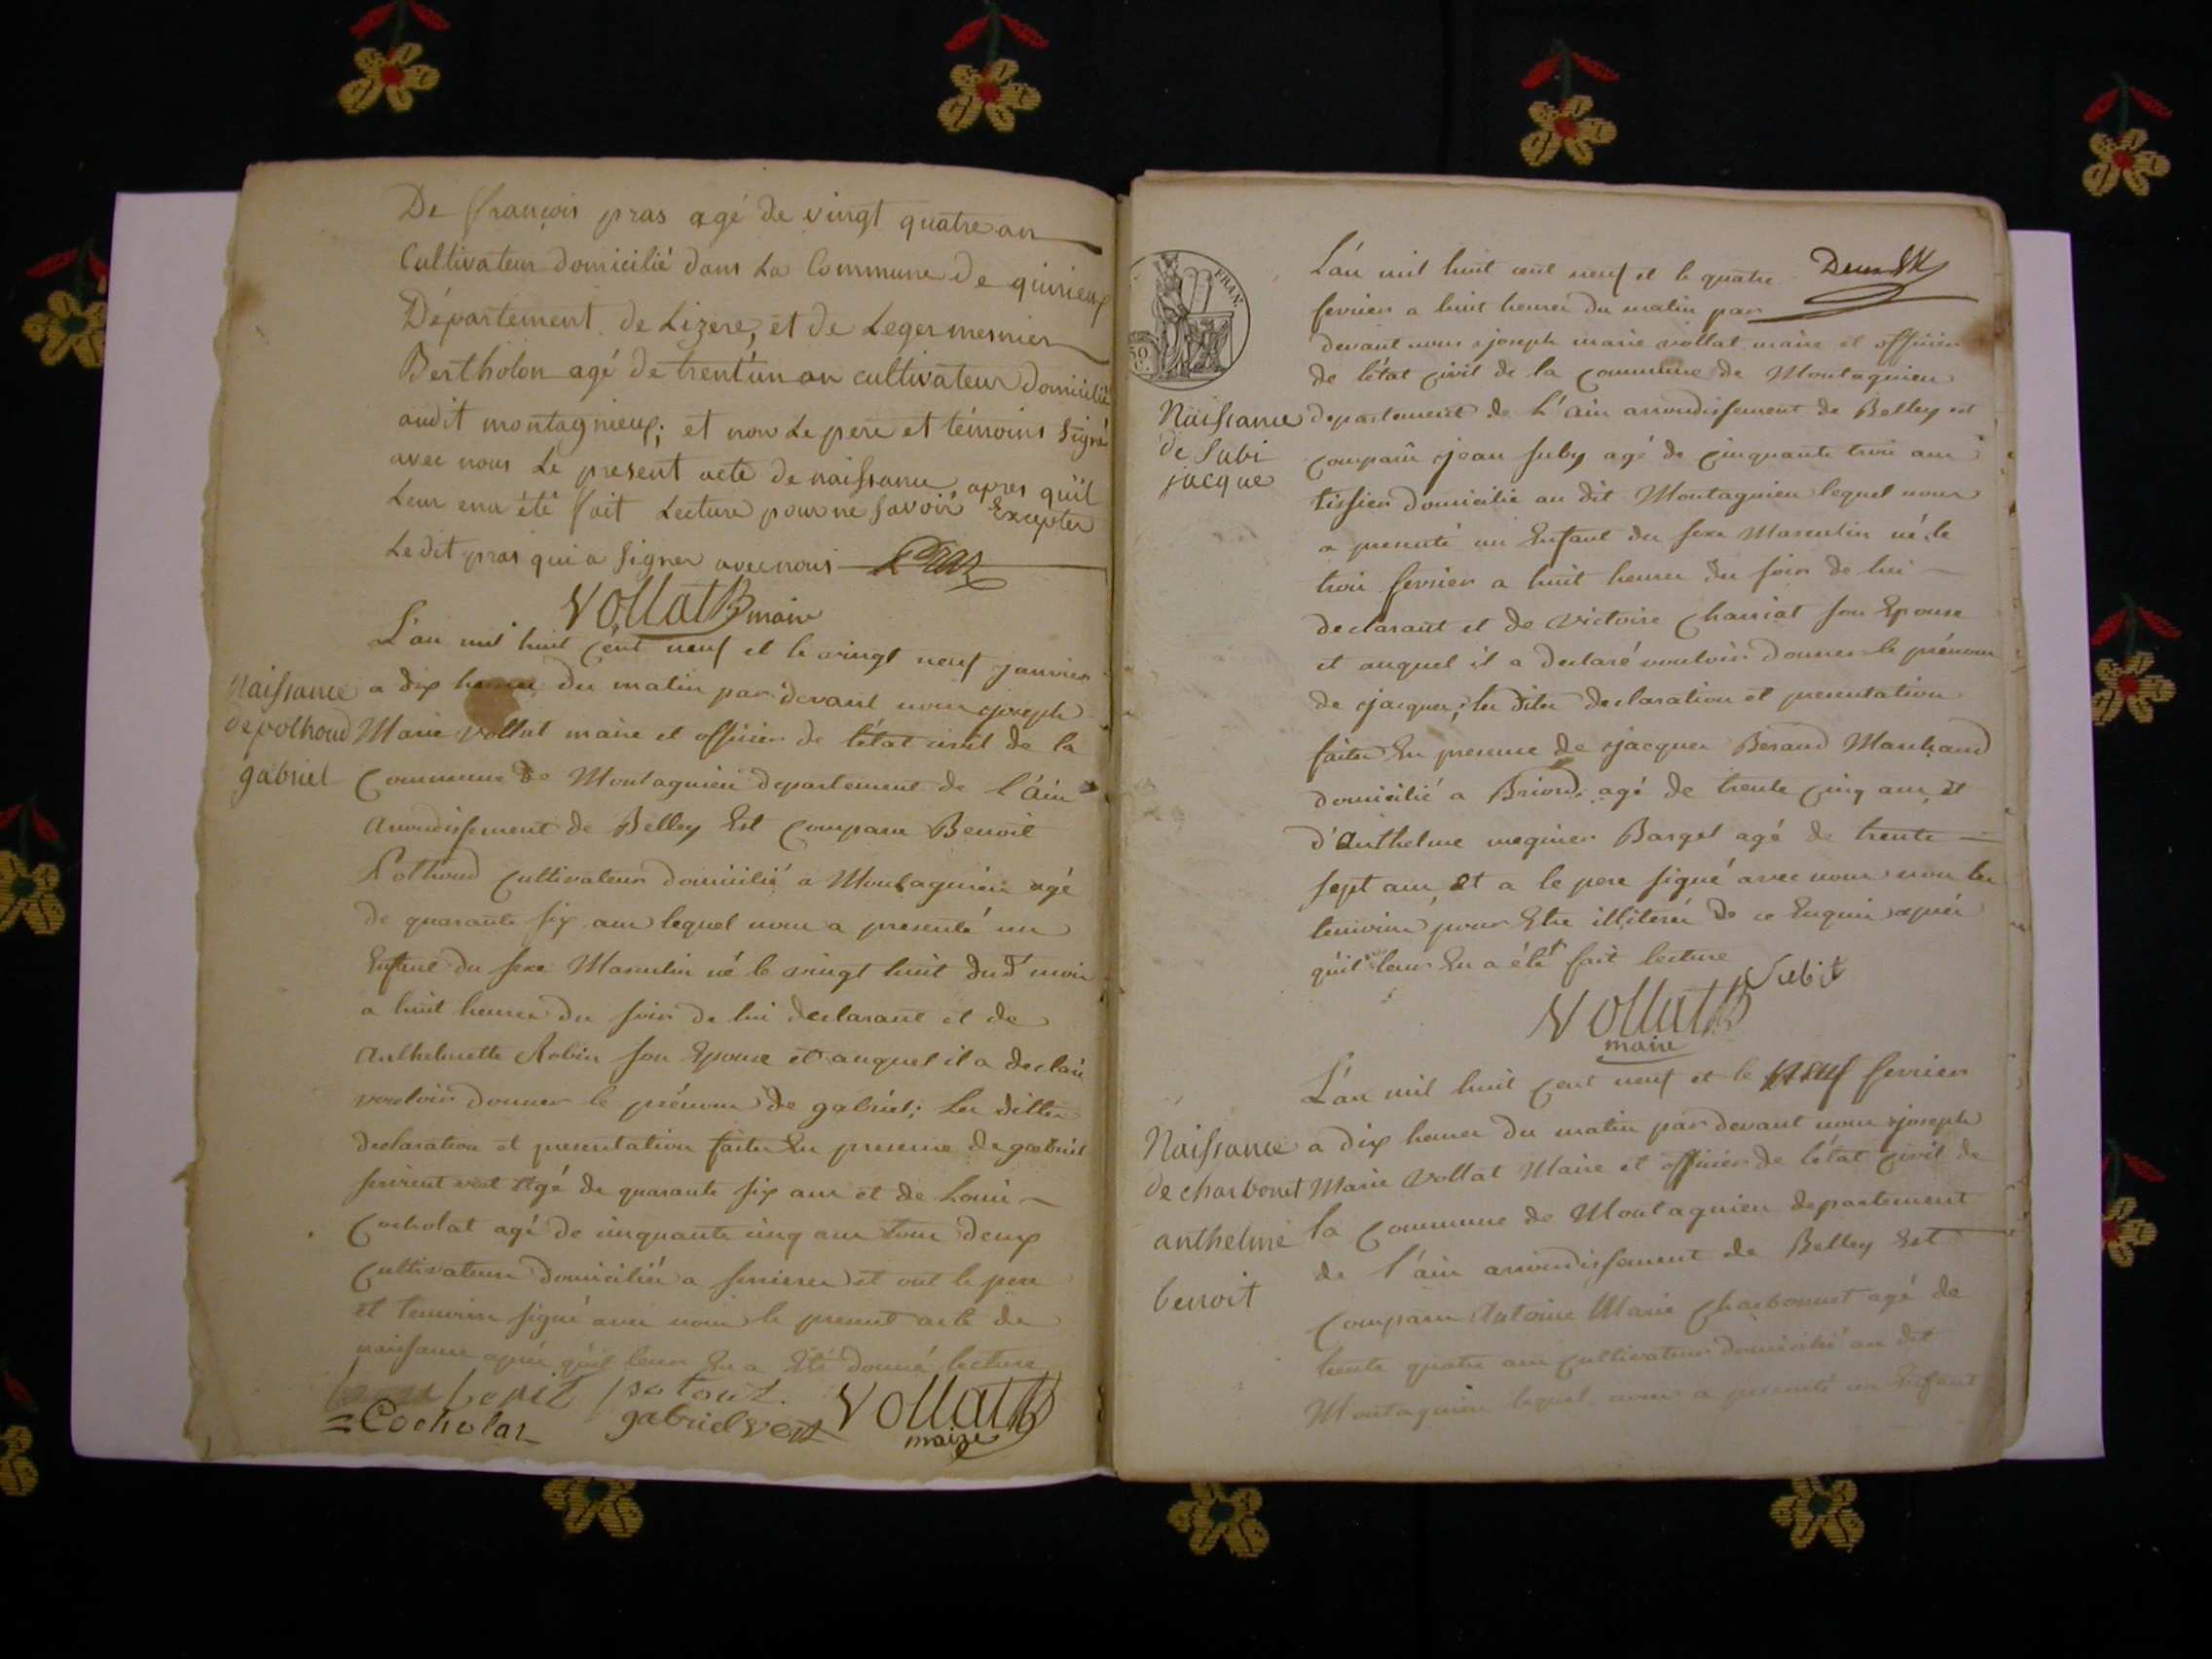 De françois pras agé de vingt quatre an
Cultivateur domicilié dans La Commune de quirieux
Département de Lizere, et de Leger mesnier
Bertholon agé de trent'un an cultivateur domicilié
audit montagnieux; et non Le pere et témoins signé
avec nous Le present acte de naissance apres qu'il
Leur en a été fait Lecture pour ne savoir Excepter
Le dit pras qui a signer avec nous Pras
Vollat maire
L'an mil huit cent neuf et le vingt neuf janvier
Naissance
de pothoud
gabriel
a dix heures du matin par devant nous joseph
Marie Vollat maire et officier de l'état civil de la
Commune de Montagnieu departement de l'Ain
Arrondissement de Belley Est Comparu Benoit
Pothoud Cultivateur domicilié a Montagnieu agé
de quarante six ans lequel nous a presenté un
Enfant du sexe Masculin né le vingt huit dud mois
a huit heures du soir de lui declarant et de
Anthelmette Robin son Epouse et auquel il a declaré
vouloir donner le prénom de gabriel; les dittes
declaration et presentation faites En presence de gabriel
vert agé de quarante six ans et de Louis
Cocholat agé de cinquante cinq ans tous deux
Cultivateurs domiciliés a serrieres et ont le pere
et temoins signé avec nous le present acte de
naissance après qu'il leur En a Eté donné lecture
Cocholat gabriel vert Vollat
maire
FRAN.
50 C.
L'an mil huit cent neuf et le quatre
fevrier a huit heures du matin par
devant nous joseph marie vollat maire et officier
de l'état civil de la commune de Montagnieu
Naissance
de Subi
jacque
departement de L'Ain arrondissement de Belley est
comparu jean suby agé de cinquante trois ans
tissier domicilié au dit Montagnieu lequel nous
a presenté un Enfant du sexe Masculin né le
trois fevrier a huit heures du soir de lui
declarant et de victoire Charriat son Epouse
et auquel il a declaré vouloir donner le prénom
de jacques; les dites declaration et presentation
faites En presence de jacques Beraud Marchand
domicilié a Briord agé de trente cinq ans Et
d'Anthelme meginer Barget agé de trente
sept ans, Et a le pere signé avec nous non les
temoins pour Etre illiterés de ce Enquis après
qu'il leur En a été fait lecture
Subit
Vollat
maire
L'an mil huit cent neuf et le neuf fevrier
Naissance
de charbonet
anthelme
benoit
a dix heures du matin par devant nous joseph
Marie Vollat Maire et officier de l'état civil de
la Commune de Montagnieu departement
de l'ain arrondissement de Belley Est
Comparu Antoine Marie Charbonnet agé de
trente quatre ans cultivateur domicilié au dit
Montagnieu lequel nous a presenté un Enfant